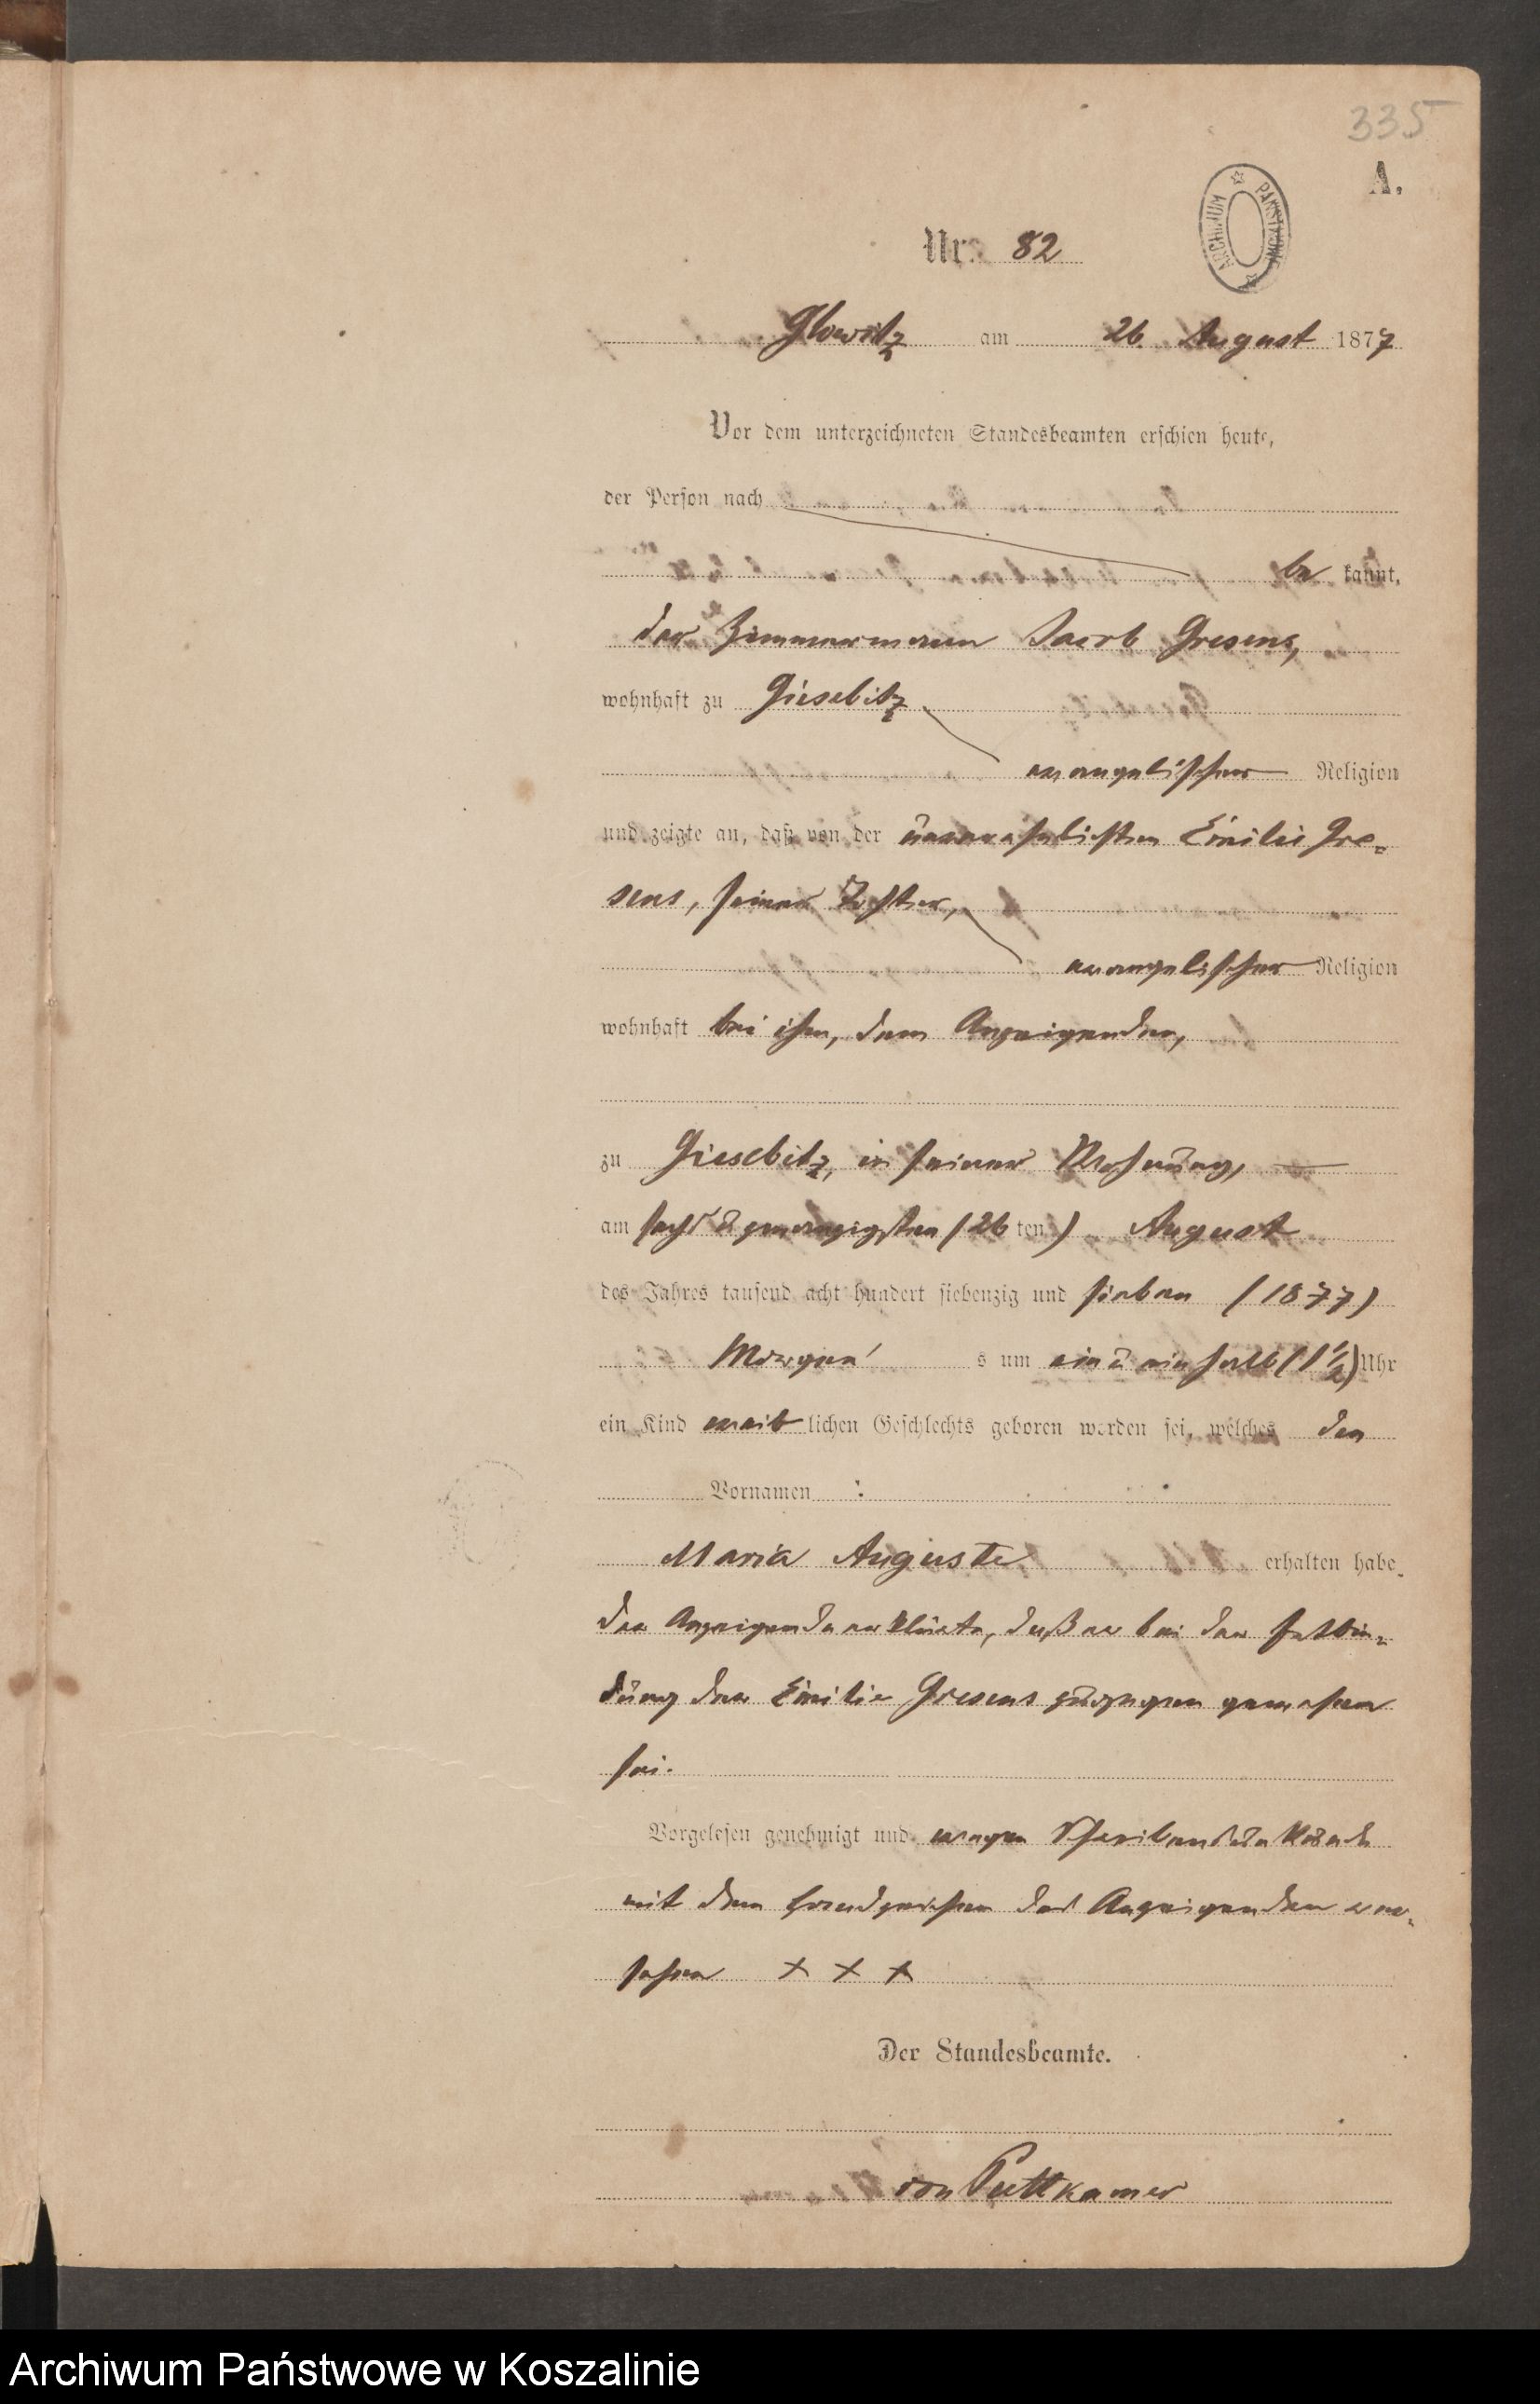 335
A.
ARCHIWUM PAŃSTWOWE
Nr. 82
Glowitz am 26. August 1877
Vor dem unterzeichneten Standesbeamten erschien heute,
der Person nach
be kannt,
der Zimmermann Jacob Gresens,
wohnhaft zu Giesebitz
evangelischer Religion
und zeigte an, daß von der unverehelichten Emilie Gre-
sens, seiner Tochter,
evangelischer Religion
wohnhaft bei ihm, dem Anzeigenden,
zu Giesebitz, in seiner Wohnung,
am sechs u zwanzigsten (26 ten) August
des Jahres tausend acht hundert siebenzig und sieben (1877)
Morgen s um ein u einhalb (1 1/2) Uhr
ein Kind weib lichen Geschlechts geboren worden sei, welches den
Vornamen :
Maria Auguste erhalten habe.
Der Anzeigende erklärte, daß er bei der Entbin-
dung der Emilie Gresens zugegen gewesen
sei.
Vorgelesen genehmigt und wegen Schreibensunkunde
mit dem Handzeichen des Anzeigenden ver-
sehen + + +
Der Standesbeamte.
von Puttkamer
Archiwum Państwowe w Koszalinie